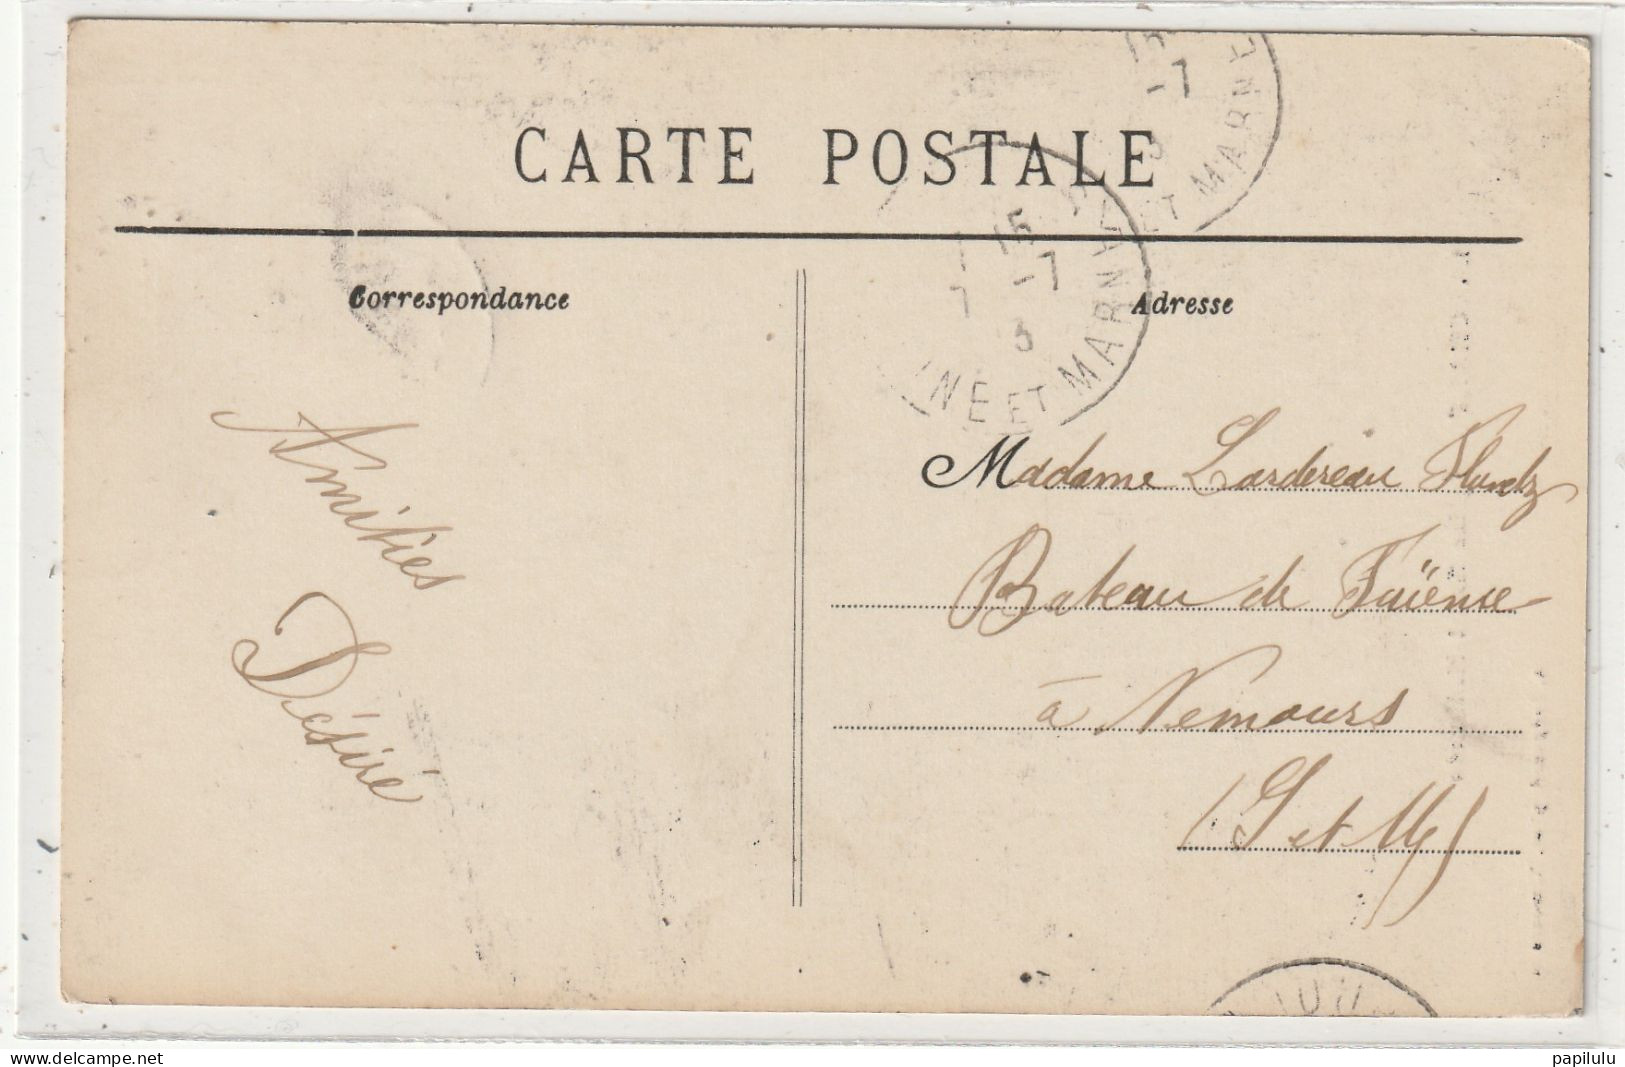 CARTE POSTALE
Correspondance
Adresse
15
-7
3
ET MARNE
15
-7
3
NE ET MARNE
Amitiés
Désiré
Madame Lardereau
Bateau de Faïence
à Nemours
(S et M)
delcampe.net
papilulu